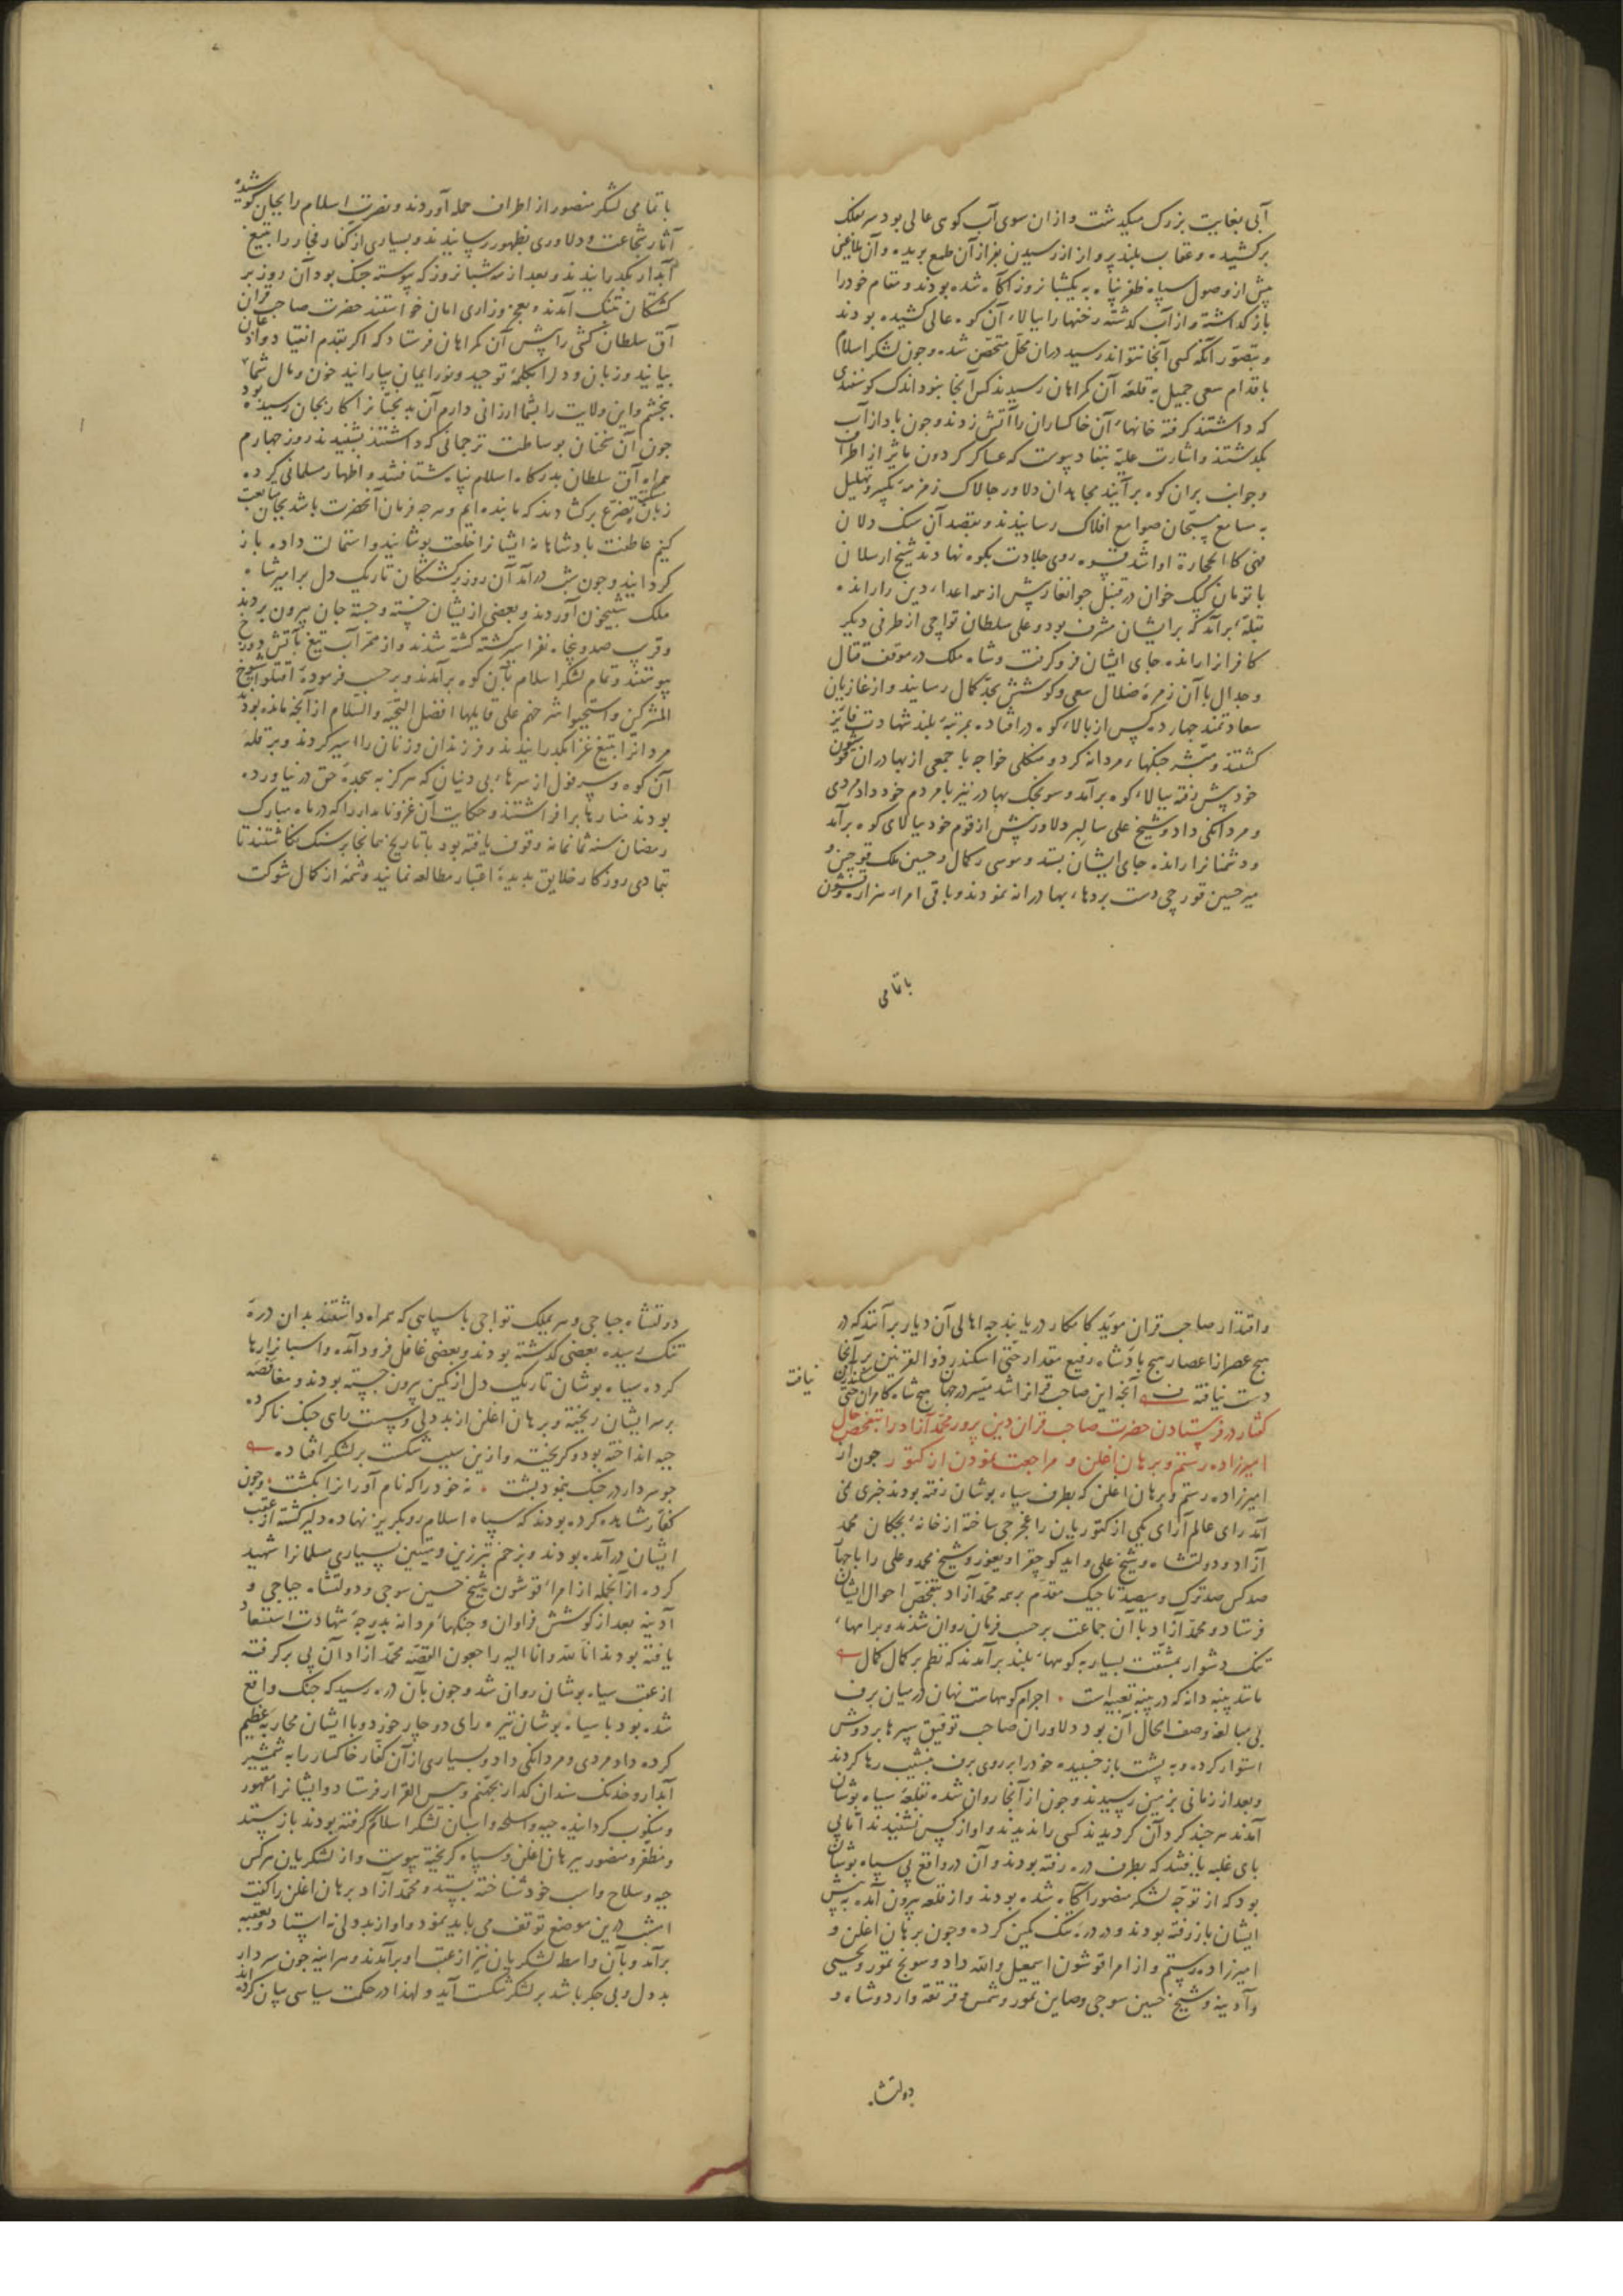 آبی بغایت بزرک میکذشت و از ان سوی آب کوهی عالی بود سر بفلک
برکشیده و عقاب بلند پرواز از رسیدن بفراز آن طمع بریده و آن ملاعین
پیش از وصول سپاه ظفر پناه به یکشبانروز آکاه شده بودند و مقام خود را
باز کذاشته و از آب کذشته رختها را ببالاء آن کوه عالی کشیده بودند
و بتصور آنکه کسی آنجا نتواند رسید دران محل متحصن شده و چون لشکر اسلام
باقدام سعی جمیل به قلعهٔ آن کمراهان رسیدند کس آنجا نبود اندک کوسفندی
که داشتند کرفته خانهاء آن خاکساران را آتش زدند و چون باد از آب
بکذشتند و اشارت علیه بنفاد پیوست که عساکر کردون مآثر از اطراف
و جوانب بران کوه برآیند مجاهدان دلاور چالاک زمزمهٔ تکبیر و تهلیل
به مسامع مسبحان صوامع افلاک رسانیدند و بقصد آن سنک دلان
فهی کالحجارة او اشد قسوه روی جلادت بکوه نهادند شیخ ارسلان
با تومان کپک خوان در قنبل جوانغار پیش از همه اعداء دین را رانده
بقلهٔ برآمد که بر ایشان مشرف بود و علی سلطان تواچی از طرفی دیکر
کافرانرا رانده جای ایشان فرو کرفت و شاه ملک در موقف قتال
و جدال با آن زمرهٔ ضلال سعی و کوشش بحد کمال رسانید و از غازیان
سعادتمند چهارده کس از بالاء کوه در افتاده بمرتبهٔ بلند شهادت فایز
کشتند و مبشر جنکهاء مردانه کرد و منکلی خواجه با جمعی از بهادران قشون
خود پیش رفته ببالاء کوه برآمد و سونجک بهادر نیز با مردم خود داد مردی
و مردانکی داد و شیخ علی سالبر دلاور پیش از قوم خود ببالای کوه برآمد
و دشمنانرا رانده جای ایشان بستد و موسی رکمال و حسین ملک قوچین و
میر حسین قورچی دست بردهاء بهادرانه نمودند و باقی امراء هزاره و قشون
باتمامی
باتمامی لشکر منصور از اطراف حمله آوردند و نصرت اسلام را بجان کوشیده
آثار شجاعت و دلاوری بظهور رسانیدند و بسیاری از کفار فجار را بتیغ
آبدار بکذرانیدند و بعد از سه شبانروز که پیوسته جنک بود آن روز بر
کشتکان بتنک آمدند و بعجز و زاری امان خواستند حضرت صاحب قران
آق سلطان کشی را پیش آن کمراهان فرستاد که اکر بقدم انقیاد و اذعان
بیایند و زبان و دل را بکلمهٔ توحید و نور ایمان بیارایند خون و مال شما
ببخشم و این ولایت را بشما ارزانی دارم آن بدبختانرا کار بجان رسیده بود
چون آن سخنان بوساطت ترجمانی که داشتند بشنیدند روز چهارم
همراه آق سلطان بدرکاه اسلام پناه شتافتند و اظهار مسلمانی کرده
زبان مسکنت و تضرع برکشادند که ما بنده ایم و هرچه فرمان آنحضرت باشد بجان متابعت
کنیم عاطفت پادشاهانه ایشانرا خلعت پوشانید و استمالت داده باز
کردانید و چون شب درآمد آن روز برکشتکان تاریک دل بر امیر شاه
ملک شبیخون آوردند و بعضی ازیشان خسته و جسته جان بیرون بردند
و قریب صد و پنجاه نفر اسیر کشته کشته شدند و از ممر آب تیغ بآتش دوزخ
پیوستند و تمام لشکر اسلام بآن کوه برآمدند و بر حسب فرمودهٔ اقتلوا شیوخ
المشرکین و استحیوا شرخهم علی قایلها افضل التحیة و السلام از آنچه مانده بود
مردانرا بتیغ غزا بکذرانیدند و فرزندان و زنان را اسیر کردند و بر قلهٔ
آن کوه و سر فول از سرهاء بی دینان که هرکز به سجدهٔ حق درنیاورده
بودند منارها برافراشتند و حکایت آن غزو نامدار را که در ماه مبارک
رمضان سنه ثمانمائه وقوف یافته بود با تاریخ همانجا بر سنک نکاشتند تا
بتمادی روزکار خلایق بدیدهٔ اعتبار مطالعه نمایند و شمهٔ از کمال شوکت
و اقتدار صاحب قران موید کامکار دریابند چه اهالی آن دیار برآنند که در
هیچ عصر از اعصار هیچ پادشاه رفیع مقدار حتی اسکندر ذو القرنین بر آنجا
دست نیافته آنچه این صاحب قرانرا شد میسر در جهان هیچ شاه کامران حتی سکندر این نیافت
کفتار در فرستادن حضرت صاحب قران دین پرور محمد آزاد را بتفحص حال
امیرزاده رستم و برهان اغلن و مراجعت نمودن از کتور چون از
امیرزاده رستم و برهان اغلن که بطرف سیاه پوشان رفته بودند خبری نمی
آمد رای عالم آرای یکی از کتوریان را غجرجی ساخته از خانه بچکان محمد
آزاد و دولتشاه و شیخ علی و اید کو چقر اویغور و شیخ محمد و علی را با چهار
صد کس صد ترک و سیصد تاجیک مقدم برهمه محمد آزاد بتفحص احوال ایشان
فرستاد و محمد آزاد با آن جماعت بر حسب فرمان روان شدند و براههاء
تنک دشوار بمشقت بسیار به کوههاء بلند برآمدند که نظم بر کمال کمال
مانند پنبه دانه که در پنبه تعبیه است اجرام کوههاست نهان در میان برف
بی مبالغه وصف الحال آن بود دلاوران صاحب توفیق سپرها بر دوش
استوار کرده و به پشت باز خسبیده خود را بر روی برف بنشیب رها کردند
و بعد از زمانی بزمین رسیدند و چون از آنجا روان شده بقلعهٔ سیاه پوشان
آمدند هر چند کرد آن کردیدند کسی را ندیدند و اواز کس نشنیدند اما پی
پای غلبه یافتند که بطرف دره رفته بودند و آن در واقع پی سیاه پوشان
بود که از توجه لشکر منصور آکاه شده بودند و از قلعه بیرون آمده به پیش
ایشان باز رفته بودند و در درهٔ تنک کمین کرده و چون برهان اغلن و
امیرزاده رستم و از امراء قوشون اسمعیل و الله داد و سونج تمور و یحیی
و آدینه و شیخ حسین سوجی و صاین تمور و شمس و قرقعه و اردوشاه و
دولتشاه
دولتشاه جباجی و سر یملک تواجی با سپاهی که همراه داشتند بدان درهٔ
تنک رسیده بعضی کذشته بودند و بعضی غافل فرود آمده و اسبانرا رها
کرده سیاه پوشان تاریک دل از کمین بیرون جسته بودند و مغافصه
بر سر ایشان ریخته و برهان اغلن از بد دلی و سست رای جنک ناکرده
جیبه انداخته بود و کریخته و ازین سبب شکست بر لشکر افتاده
چو سردار در جنک بنمود پشت نه خود را که نام آورانرا بکشت و چون
کفار مشاهده کرده بودند که سپاه اسلام رو بکریز نهاده دلیر کشته از عقب
ایشان درآمده بودند و بزخم تبرزین و بسیاری مسلمانرا شهید
کرده از آنجمله از امراء قوشون شیخ حسین سوجی و دولتشاه جباجی و
آدینه بعد از کوشش فراوان و جنکهاء مردانه بدرجهٔ شهادت استسعاد
یافته بودند انا لله و انا الیه راجعون القصه محمد آزاد آن پی بر کرفته
از عقب سیاه پوشان روان شد و چون بآن دره رسید که جنک واقع
شده بود با سیاه پوشان تیره رای دو چار خورد و با ایشان محاربهٔ عظیم
کرده داد مردی و مردانکی داد و بسیاری از آن کفار خاکسار را به شمشیر
آبدار و خدنک سندان کذار بجهنم و بئس القرار فرستاد و ایشانرا مقهور
و منکوب کردانیده جیبه و اسلحه و اسبان لشکر اسلام که کرفته بودند باز ستد
و مظفر و منصور ببرهان اغلن و سپاه کریخته پیوست و از لشکریان هرکس
جیبه و سلاح و اسب خود شناخته بستد و محمد آزاد برهان اغلن را کفت
امشب درین موضع توقف می باید نمود و او از بد دلی نه ایستاد و بعقبه
برآمد و بآن واسطه لشکریان نیز از عقب او برآمدند و هر آینه چون سردار
بد دل و بی جکر باشد بر لشکر شکست آید و لهذا در حکمت سیاسی بیان کرده اند